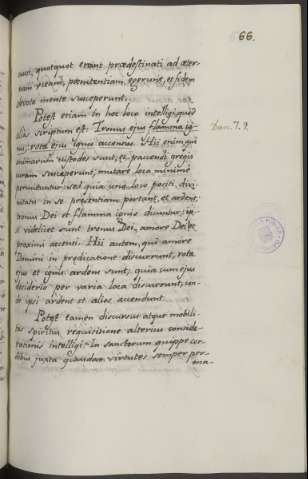 66.
erunt, quotquot erant prædestinati ad æter-
nam vitam, pœnitentiam egerunt, et fidem
devota mente susceperunt.
Potest etiam in hoc loco intelligi quod
alia scriptum est. Tronus ejus flamma ig-
nis: rotæ ejus ignis accensus. Hii enim qui
animarum custodes sunt, et pascendi gregis
curam susceperunt; mutare loca minime
permittuntur: sed quia uno loco positi, divi-
nitatis in se præsentiam portant, et ardent;
tronus Dei et flamma esse dicuntur; ip-
si videlicet sunt tronus Dei, amore Dei et
proximi accensi. Hii autem, qui amore
Domini in prædicatione discurrunt; rota
ejus et ignis ardens sunt; quia cum ejus
desiderio per varia loca discurrunt;
et ipsi ardent et alios accendunt.
Potest tamen discursus atque mobili-
tas spiritus requisitione alterius conside-
rationis intelligi. In sanctorum quippe cor-
dibus juxta quasdam virtutes semper per-
ma-
Dan. 7. 9.